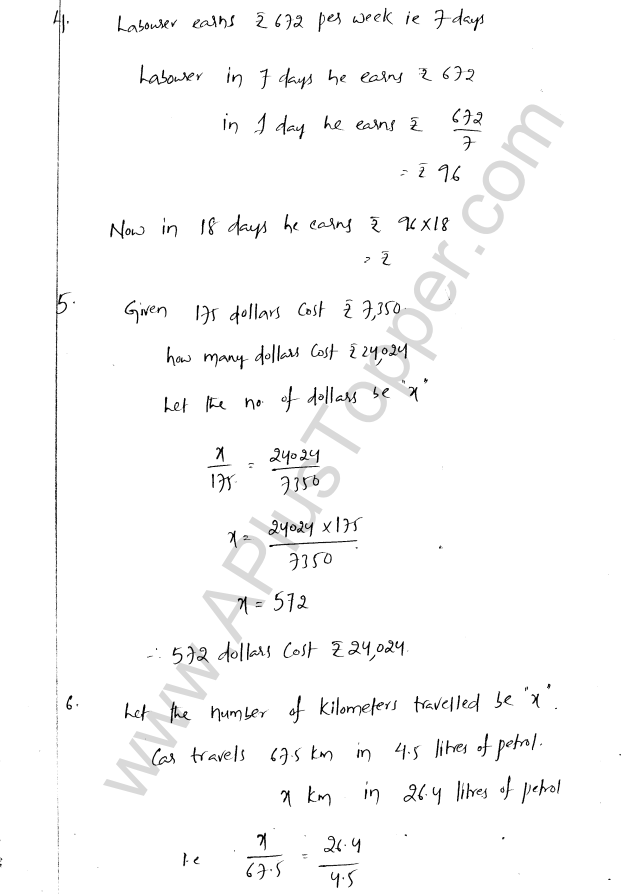 4). Labourer earns ₹ 672 per week ie 7 days
Labourer in 7 days he earns ₹ 672
in 1 day he earns ₹ 672/7
= ₹ 96
Now in 18 days he earns ₹ 96 × 18
= ₹
5. Given 175 dollars cost ₹ 7,350
how many dollars cost ₹ 24,024
Let the no. of dollars be "x"
x/175 = 24024/7350
x = 24024 × 175/7350
x = 572
∴ 572 dollars cost ₹ 24,024
6. Let the number of kilometers travelled be "x".
Car travels 67.5 km in 4.5 litres of petrol.
x km in 26.4 litres of petrol
i.e x/67.5 = 26.4/4.5
www.APlusTopper.com